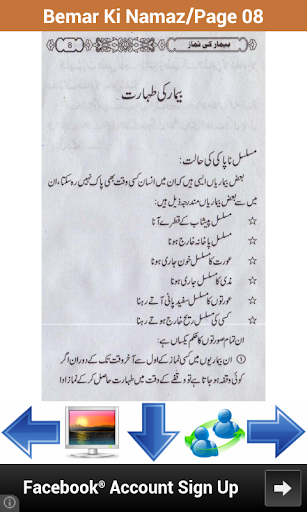 Bemar Ki Namaz/Page 08
8 بیمار کی نماز
بیمار کی طہارت
مسلسل ناپاکی کی حالت:
بعض بیماریاں ایسی ہیں کہ ان میں انسان کسی وقت بھی پاک نہیں رہ سکتا، ان
میں سے بعض بیماریاں مندرجہ ذیل ہیں:
☆ مسلسل پیشاب کے قطرے آنا
☆ مسلسل پاخانہ خارج ہونا
☆ عورت کا مسلسل خون جاری ہونا
☆ مذی کا مسلسل جاری ہونا
☆ عورتوں کا مسلسل سفید پانی آتے رہنا
☆ کسی کی مسلسل ریح خارج ہوتے رہنا
ان تمام صورتوں کا حکم یکساں ہے:
① ان بیماریوں میں کسی نماز کے اول سے آخر وقت تک کے دوران اگر
کوئی وقفہ ہو جاتا ہے تو وقفے کے وقت میں طہارت حاصل کر کے نماز ادا
Facebook® Account Sign Up